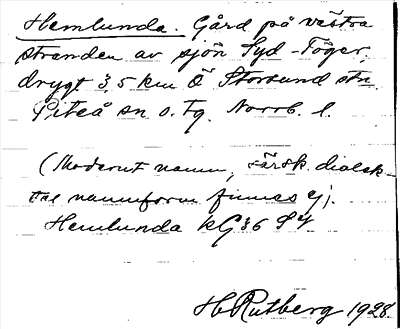 Hemlunda. Gård på västra
stranden av sjön Syd-Töger,
drygt 3,5 km Ö Storsund stn.
Piteå sn. o. tg. Norrb. l.
(Modernt namn, särsk. dialek-
tal namnform finnes ej).
Hemlunda kG36 SV
H Rutberg 1928.